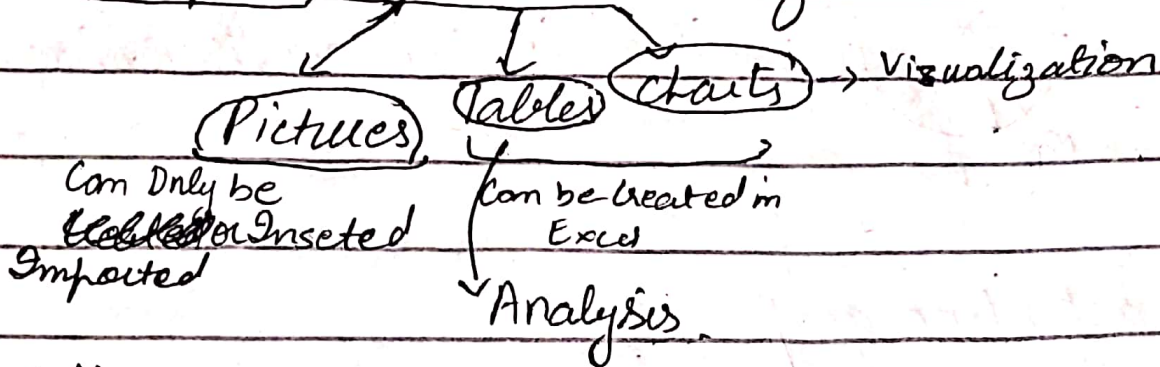 Pictures Tables Charts → Visualization
Can Only be
or Inseted
Imported
Can be created in
Excel
Analysis.